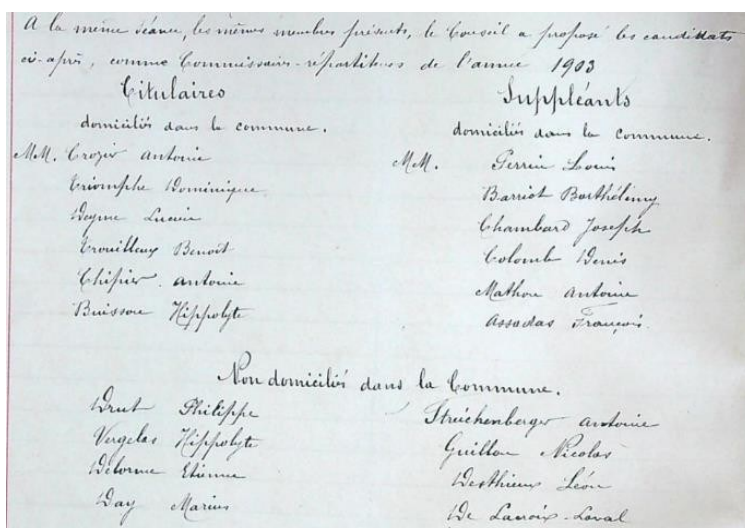 A la même séance, les mêmes membres présents, le Conseil a proposé les candidats
ci-après, comme Commissaires-répartiteurs de l'année 1903
Titulaires
domiciliés dans la commune.
MM. Crozier Antoine
Triomphe Dominique
Deyme Lucien
Trouilleux Benoit
Chipier Antoine
Buisson Hippolyte
Suppléants
domiciliés dans la commune.
MM. Perrin Louis
Barriot Barthélémy
Chambard Joseph
Colomb Denis
Mathon Antoine
Assadas François.
Non domiciliés dans la Commune.
Drut Philippe
Vergelas Hippolyte
Delorme Etienne
Day Marius
Streichenberger Antoine
Guillon Nicolas
Desthieux Léon
De Lacroix-Laval